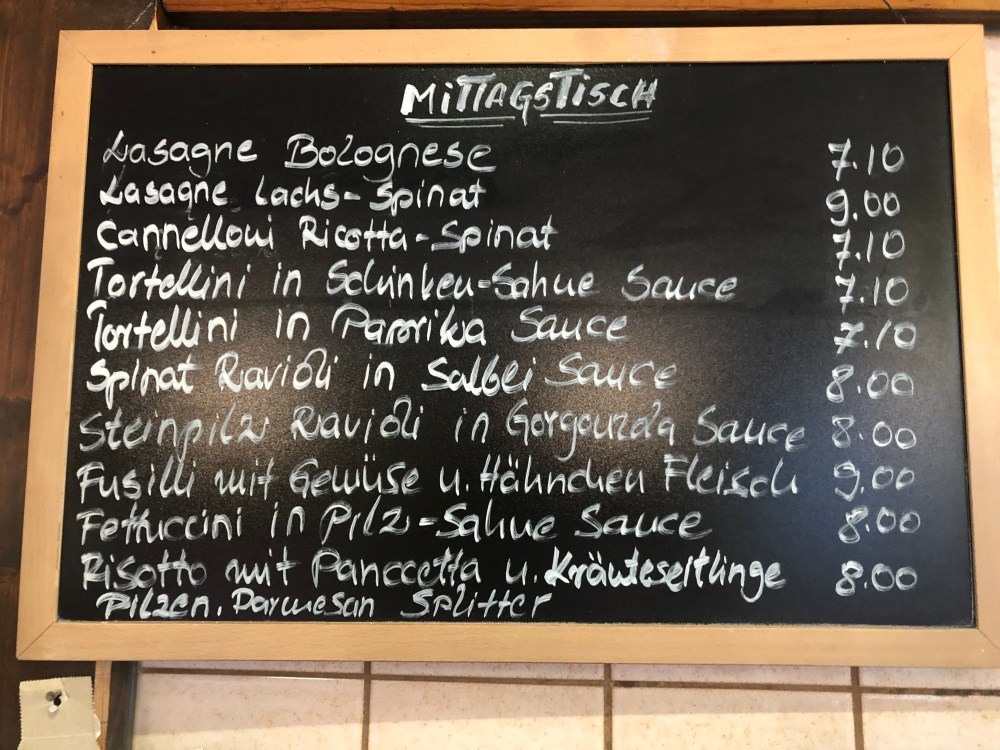 MiTTAGSTiSCH
Lasagne Bolognese 7.10
Lasagne Lachs-Spinat 9.00
Cannelloni Ricotta-Spinat 7.10
Tortellini in Schinken-Sahne Sauce 7.10
Tortellini in Paprika Sauce 7.10
Spinat Ravioli in Salbei Sauce 8.00
Steinpilz Ravioli in Gorgonzola Sauce 8.00
Fusilli mit Gemüse u. Hähnchen Fleisch 9.00
Fettuccini in Pilz-Sahne Sauce 8.00
Risotto mit Panccetta u. Kräuteseitlinge 8.00
Pilzen. Parmesan Splitter